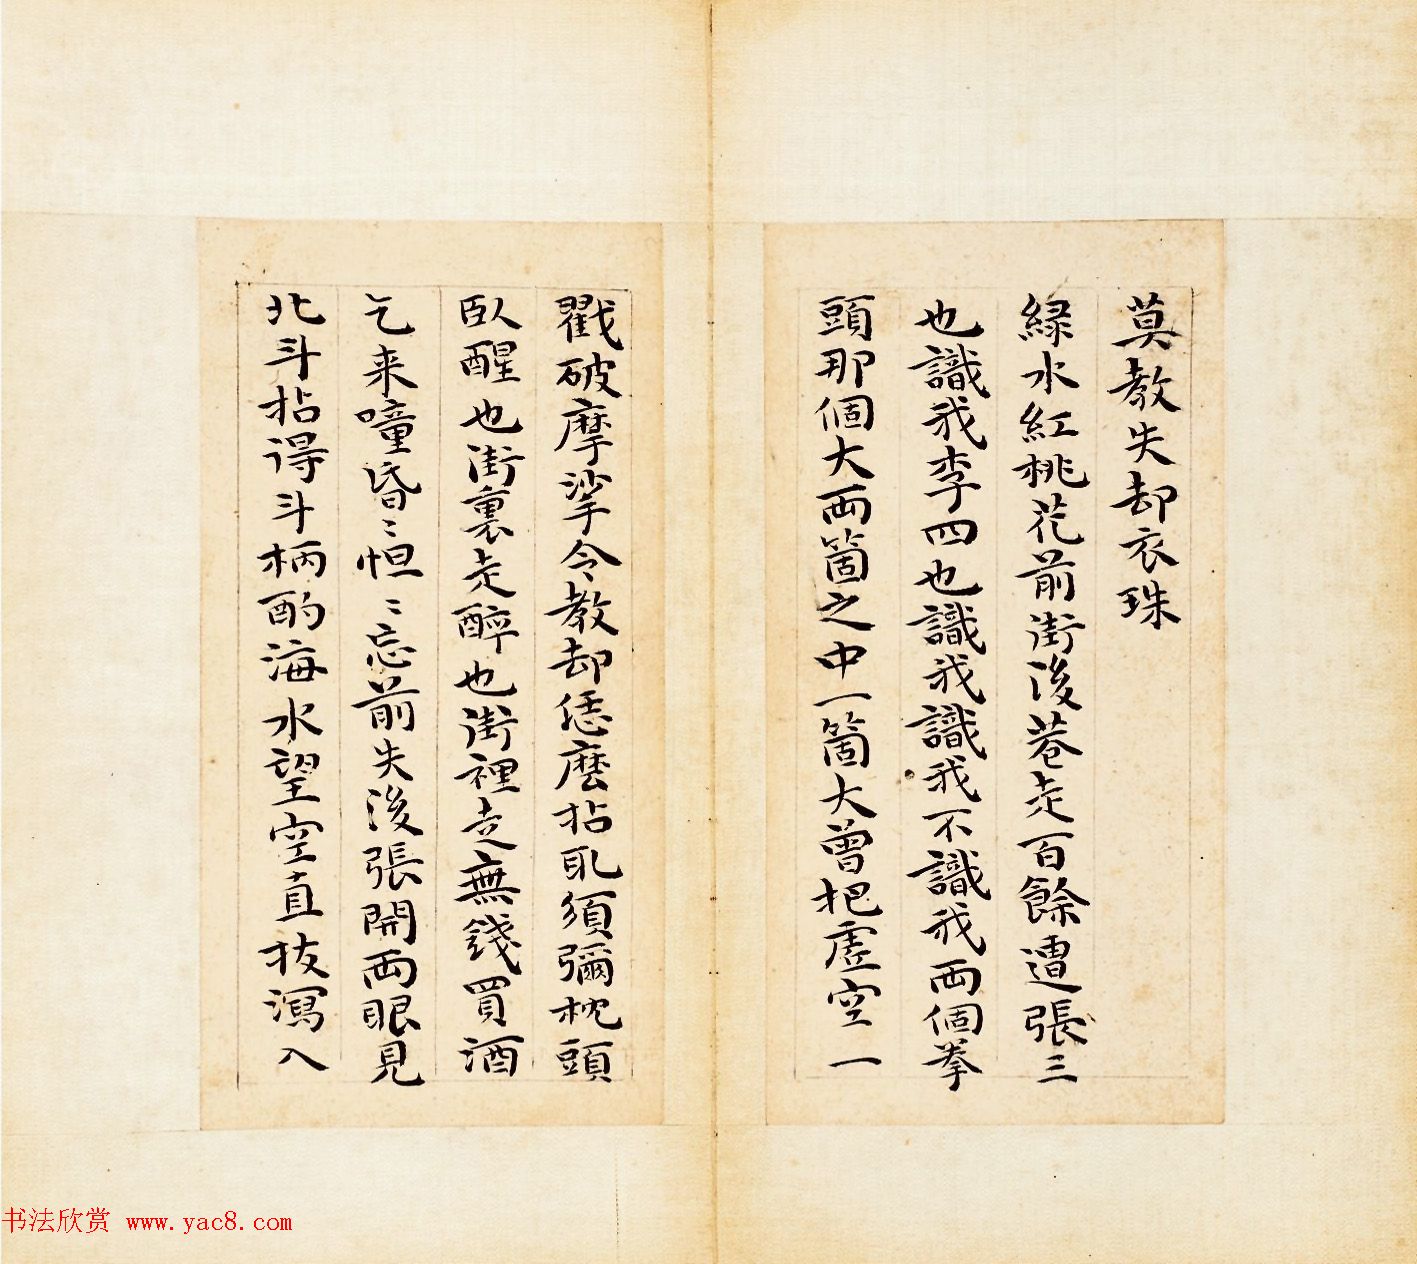 莫教失却衣珠
緑水紅桃花前街後巷走百餘遭張三
也識我李四也識我識我不識我兩個拳
頭那個大兩箇之中一箇大曾把虛空一
戳破摩挲令教却恁麽拈取須彌枕頭
臥醒也街裏走醉也街裡走無錢買酒
乞来噇昏〻怛〻忘前失後張開兩眼見
北斗拈得斗柄酌海水望空直抜瀉入
书法欣赏 www.yac8.com